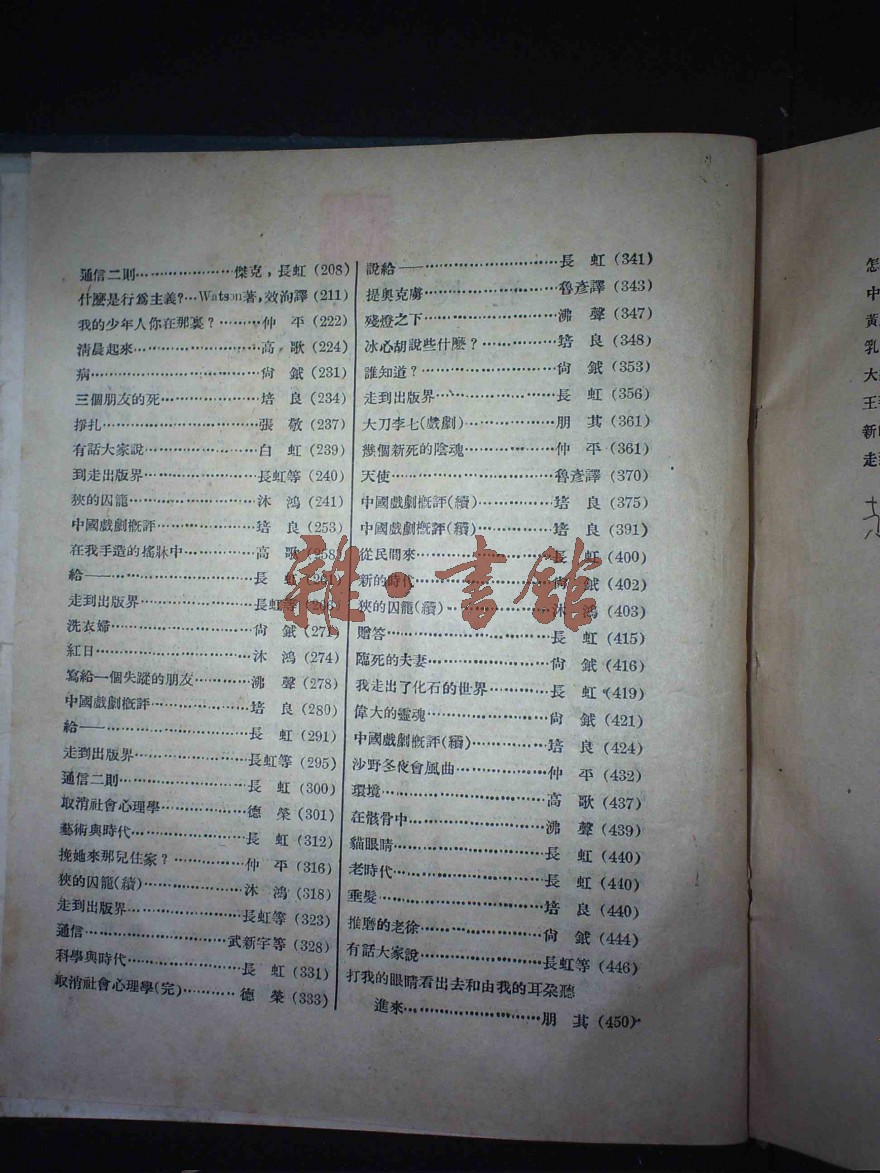 通信二則…………………傑克，長虹 (208)
什麼是行爲主義?…Watson著，效洵譯 (211)
我的少年人你在那裏？………仲　平 (222)
清晨起來………………高　歌 (224)
病……………………………尙　鉞 (231)
三個朋友的死………………培　良 (234)
掙扎…………………………張　敬 (237)
有話大家說…………………白　虹 (239)
到走出版界…………………長虹等 (240)
狹的囚籠……………………沐　鴻 (241)
中國戲劇概評………………培　良 (253)
在我手造的搖牀中…………高　歌 (258)
給——………………………長　虹 (261)
走到出版界…………………長虹等
洗衣婦………………………尙　鉞
紅日…………………………沐　鴻 (274)
寫給一個失蹤的朋友………沸　聲 (278)
中國戲劇概評………………培　良 (280)
給——………………………長　虹 (291)
走到出版界…………………長虹等 (295)
通信二則……………………長　虹 (300)
取消社會心理學……………德　榮 (301)
藝術與時代…………………長　虹 (312)
挽她來那兒住家？…………仲　平 (316)
狹的囚籠(續)………………沐　鴻 (318)
走到出版界…………………長虹等 (323)
通信…………………………武新宇等 (328)
科學與時代…………………長　虹 (331)
取消社會心理學(完)………德　榮 (333)
說給——……………………長　虹 (341)
提奧克虜……………………魯彥譯 (343)
殘燈之下……………………沸　聲 (347)
冰心胡說些什麽？…………培　良 (348)
誰知道？……………………尙　鉞 (353)
走到出版界…………………長　虹 (356)
大刀李七(戲劇)……………朋　其 (361)
幾個新死的陰魂……………仲　平 (361)
天使…………………………魯彥譯 (370)
中國戲劇概評(續)…………培　良 (375)
中國戲劇概評(續)…………培　良 (391)
從民間來……………………長　虹 (400)
新的時代……………………尙　鉞 (402)
狹的囚籠(續)………………沐　鴻 (403)
贈答…………………………長　虹 (415)
臨死的夫妻…………………尙　鉞 (416)
我走出了化石的世界………長　虹 (419)
偉大的靈魂…………………尙　鉞 (421)
中國戲劇概評(續)…………培　良 (424)
沙野冬夜會風曲……………仲　平 (432)
環境…………………………高　歌 (437)
在骸骨中……………………沸　聲 (439)
貓眼睛………………………長　虹 (440)
老時代………………………長　虹 (440)
垂髮…………………………培　良 (440)
推磨的老徐…………………尙　鉞 (444)
有話大家說…………………長虹等 (446)
打我的眼睛看出去和由我的耳朶聽
進來…………………………朋　其 (450)
雜·書館
怎
中
黃
乳
大
王
新
走